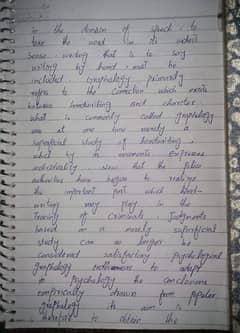 in the domain of speech to
take the word in its widest
sense writing that is to say
writing by hand, must be
included graphology primarily
refers to the connection which exists
between handwriting and character
what is commonly called graphology
was at one time merely a
superficial study of handwriting,
what by a moments expresses
individuality, since that the police
authorities have begun to realize
the important part which Hand-
writing may play in the
Tracing of Criminals, Judgments
based on a merely superficial
study can no longer be
considered satisfactory psychological
graphology endeavours to adapt
to psychology the conclusions
empirically drawn from popular
graphology its own
therefore to obtain the